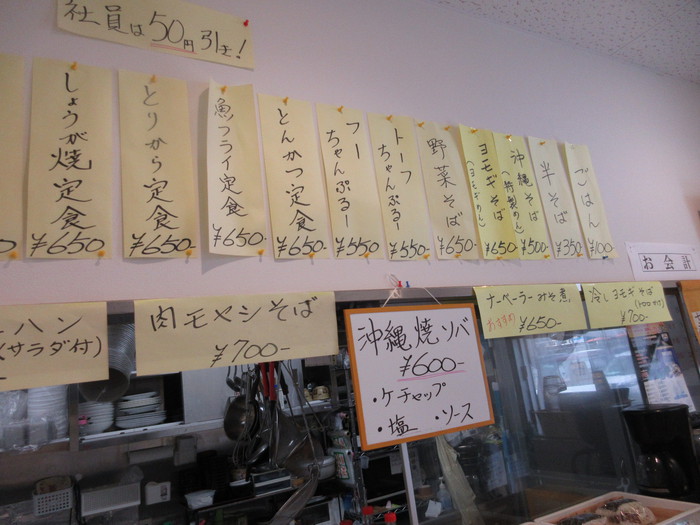 社員は50円引き!
しょうが焼定食
¥650
とりから定食
¥650-
魚フライ定食
¥650-
とんかつ定食
¥650-
フー
ちゃんぷるー
¥550
トーフ
ちゃんぷるー
¥550-
野菜そば
¥650-
ヨモギそば
(ヨモギめん)
¥650
沖縄そば
(特製めん)
¥500-
半そば
¥350
ごはん
¥100-
お会計
ハン
(サラダ付)
肉モヤシそば
¥700-
沖縄焼ソバ
¥600-
・ケチャップ
・塩 ・ソース
ナーベーラーみそ煮
おすすめ
¥650-
冷しヨモギそば
¥700-